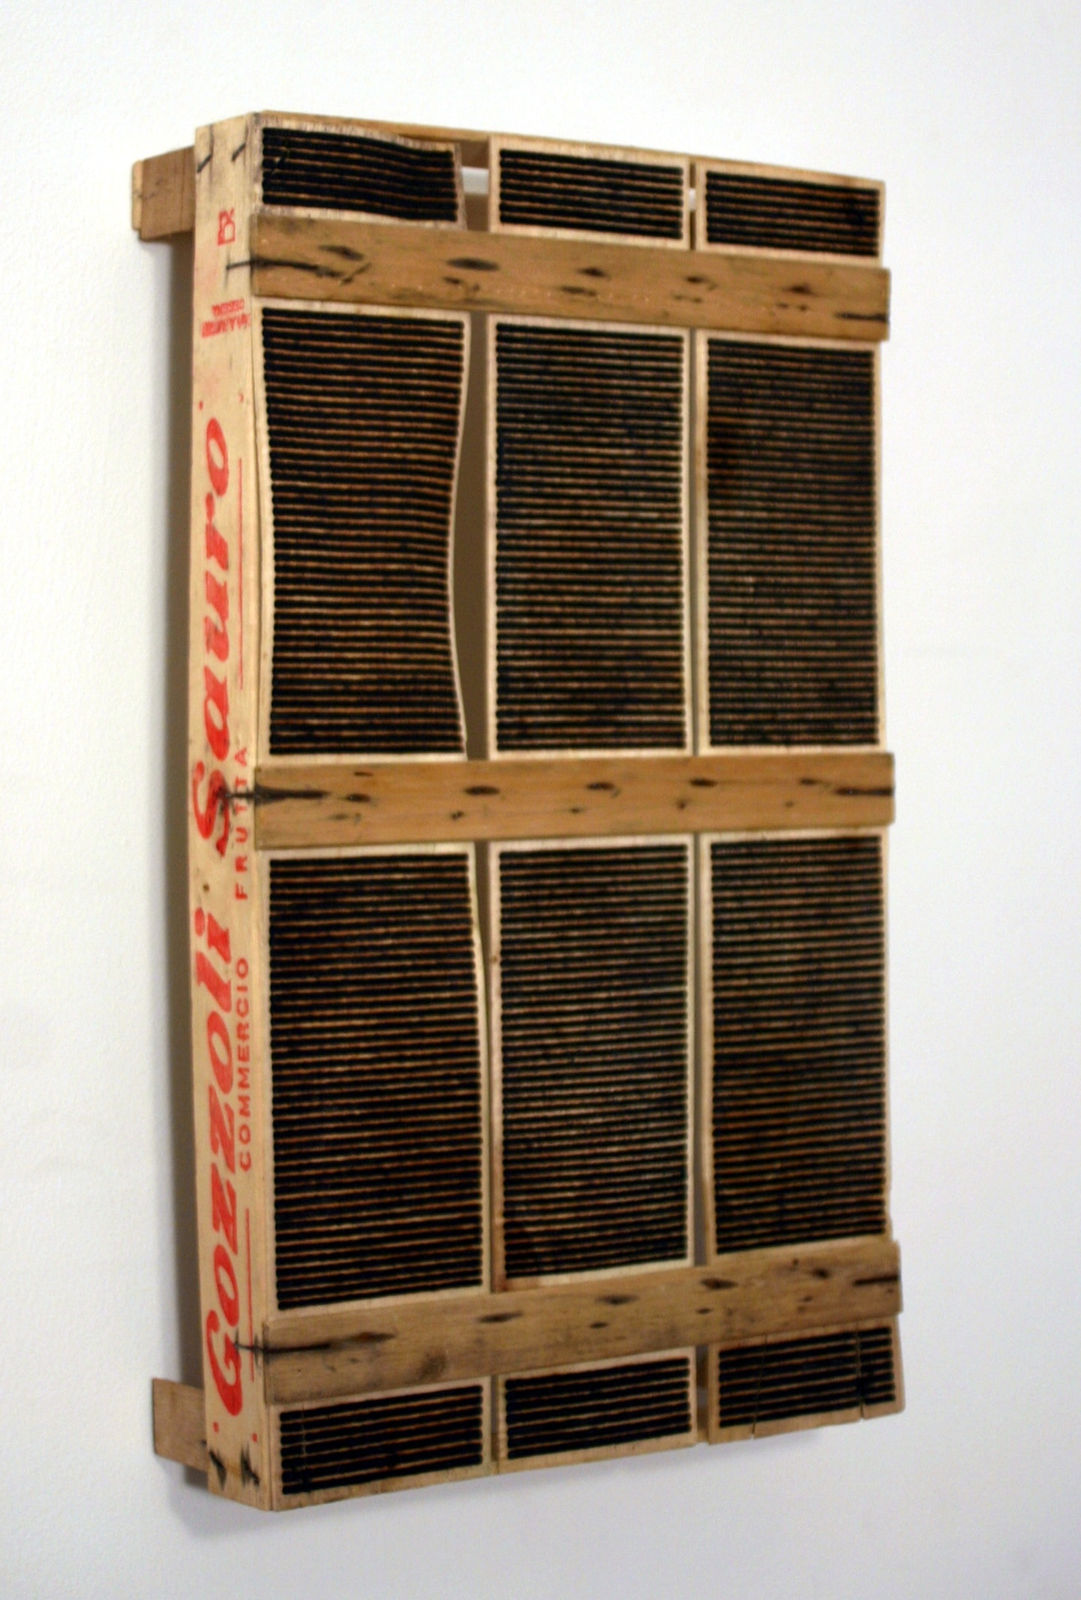 Gozzoli Sauro
COMMERCIO FRUTTA